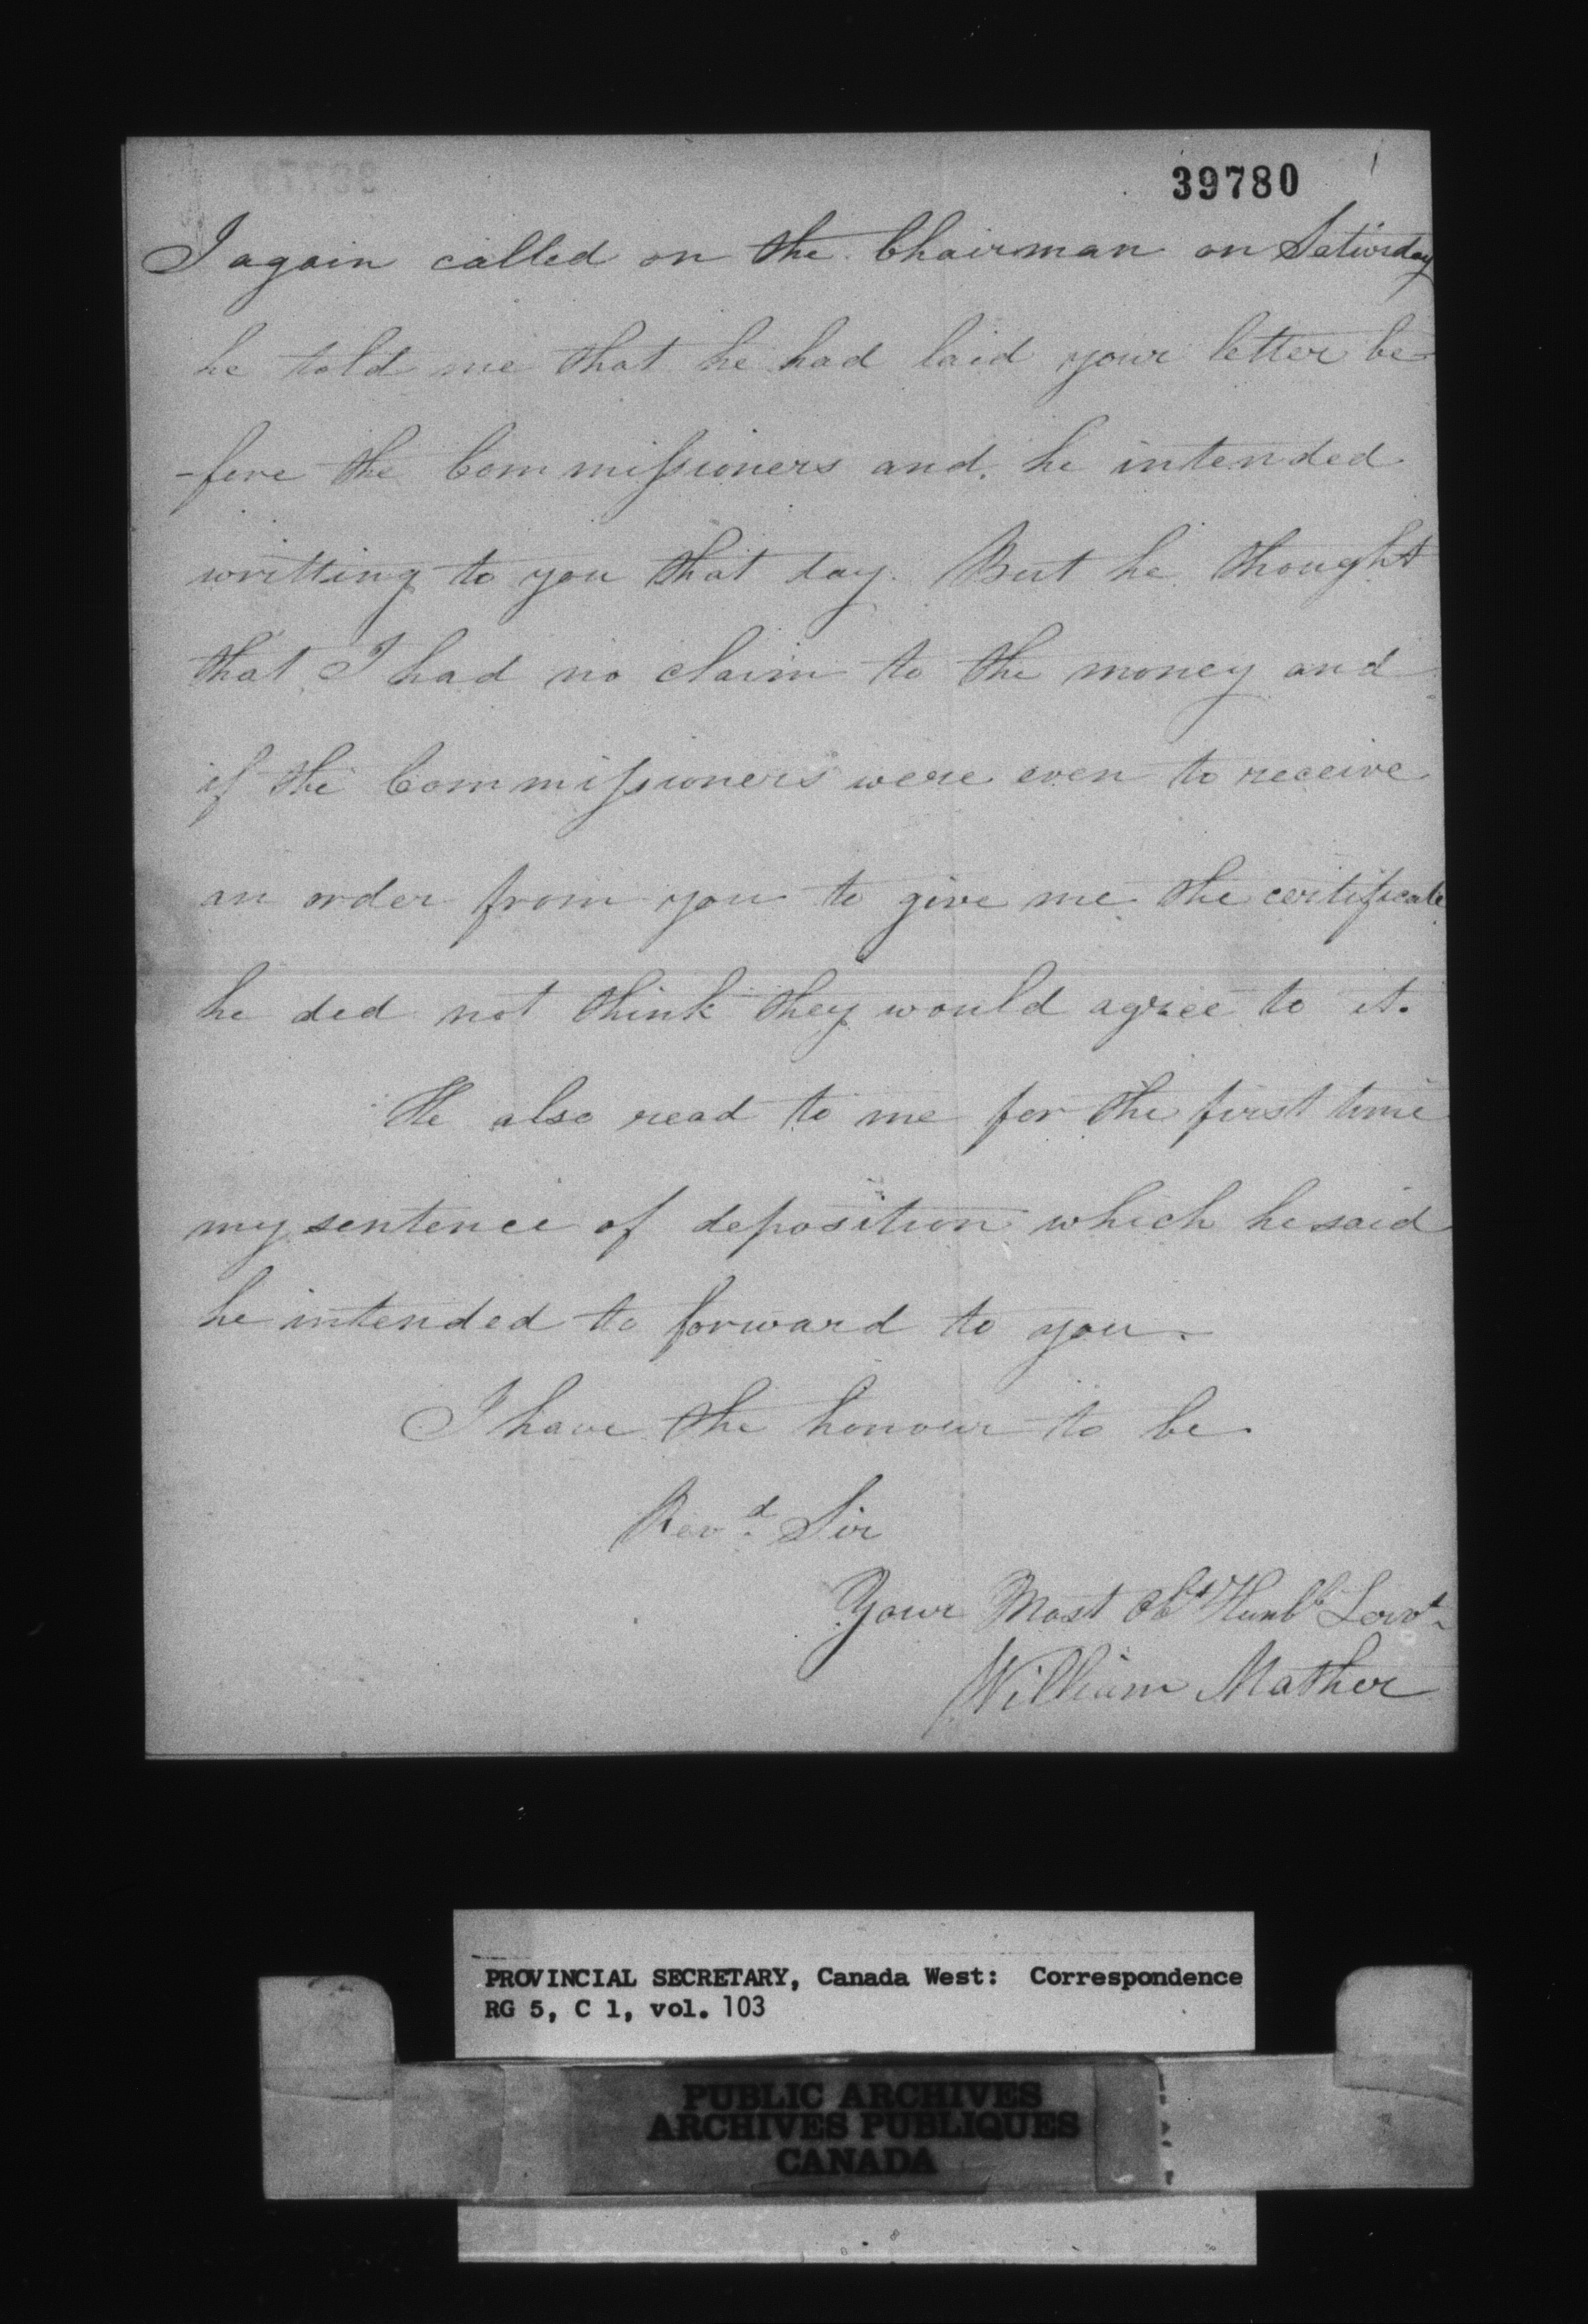 39780
I again called on the Chairman on Saturday
he told me that he had laid your letter be-
-fore the Commissioners and he intended
writting to you that day. But he thought
that I had no claim to the money and
if the Commissioners were even to receive
an order from you to give me the certificate
he did not think they would agree to it.
He also read to me for the first time
my sentence of deposition which he said
he intended to forward to you.
I have the honour to be
Revd. Sir
Your Most Obt Humbl Servt
William Mather
PROVINCIAL SECRETARY, Canada West: Correspondence
RG 5, C 1, vol. 103
PUBLIC ARCHIVES
ARCHIVES PUBLIQUES
CANADA